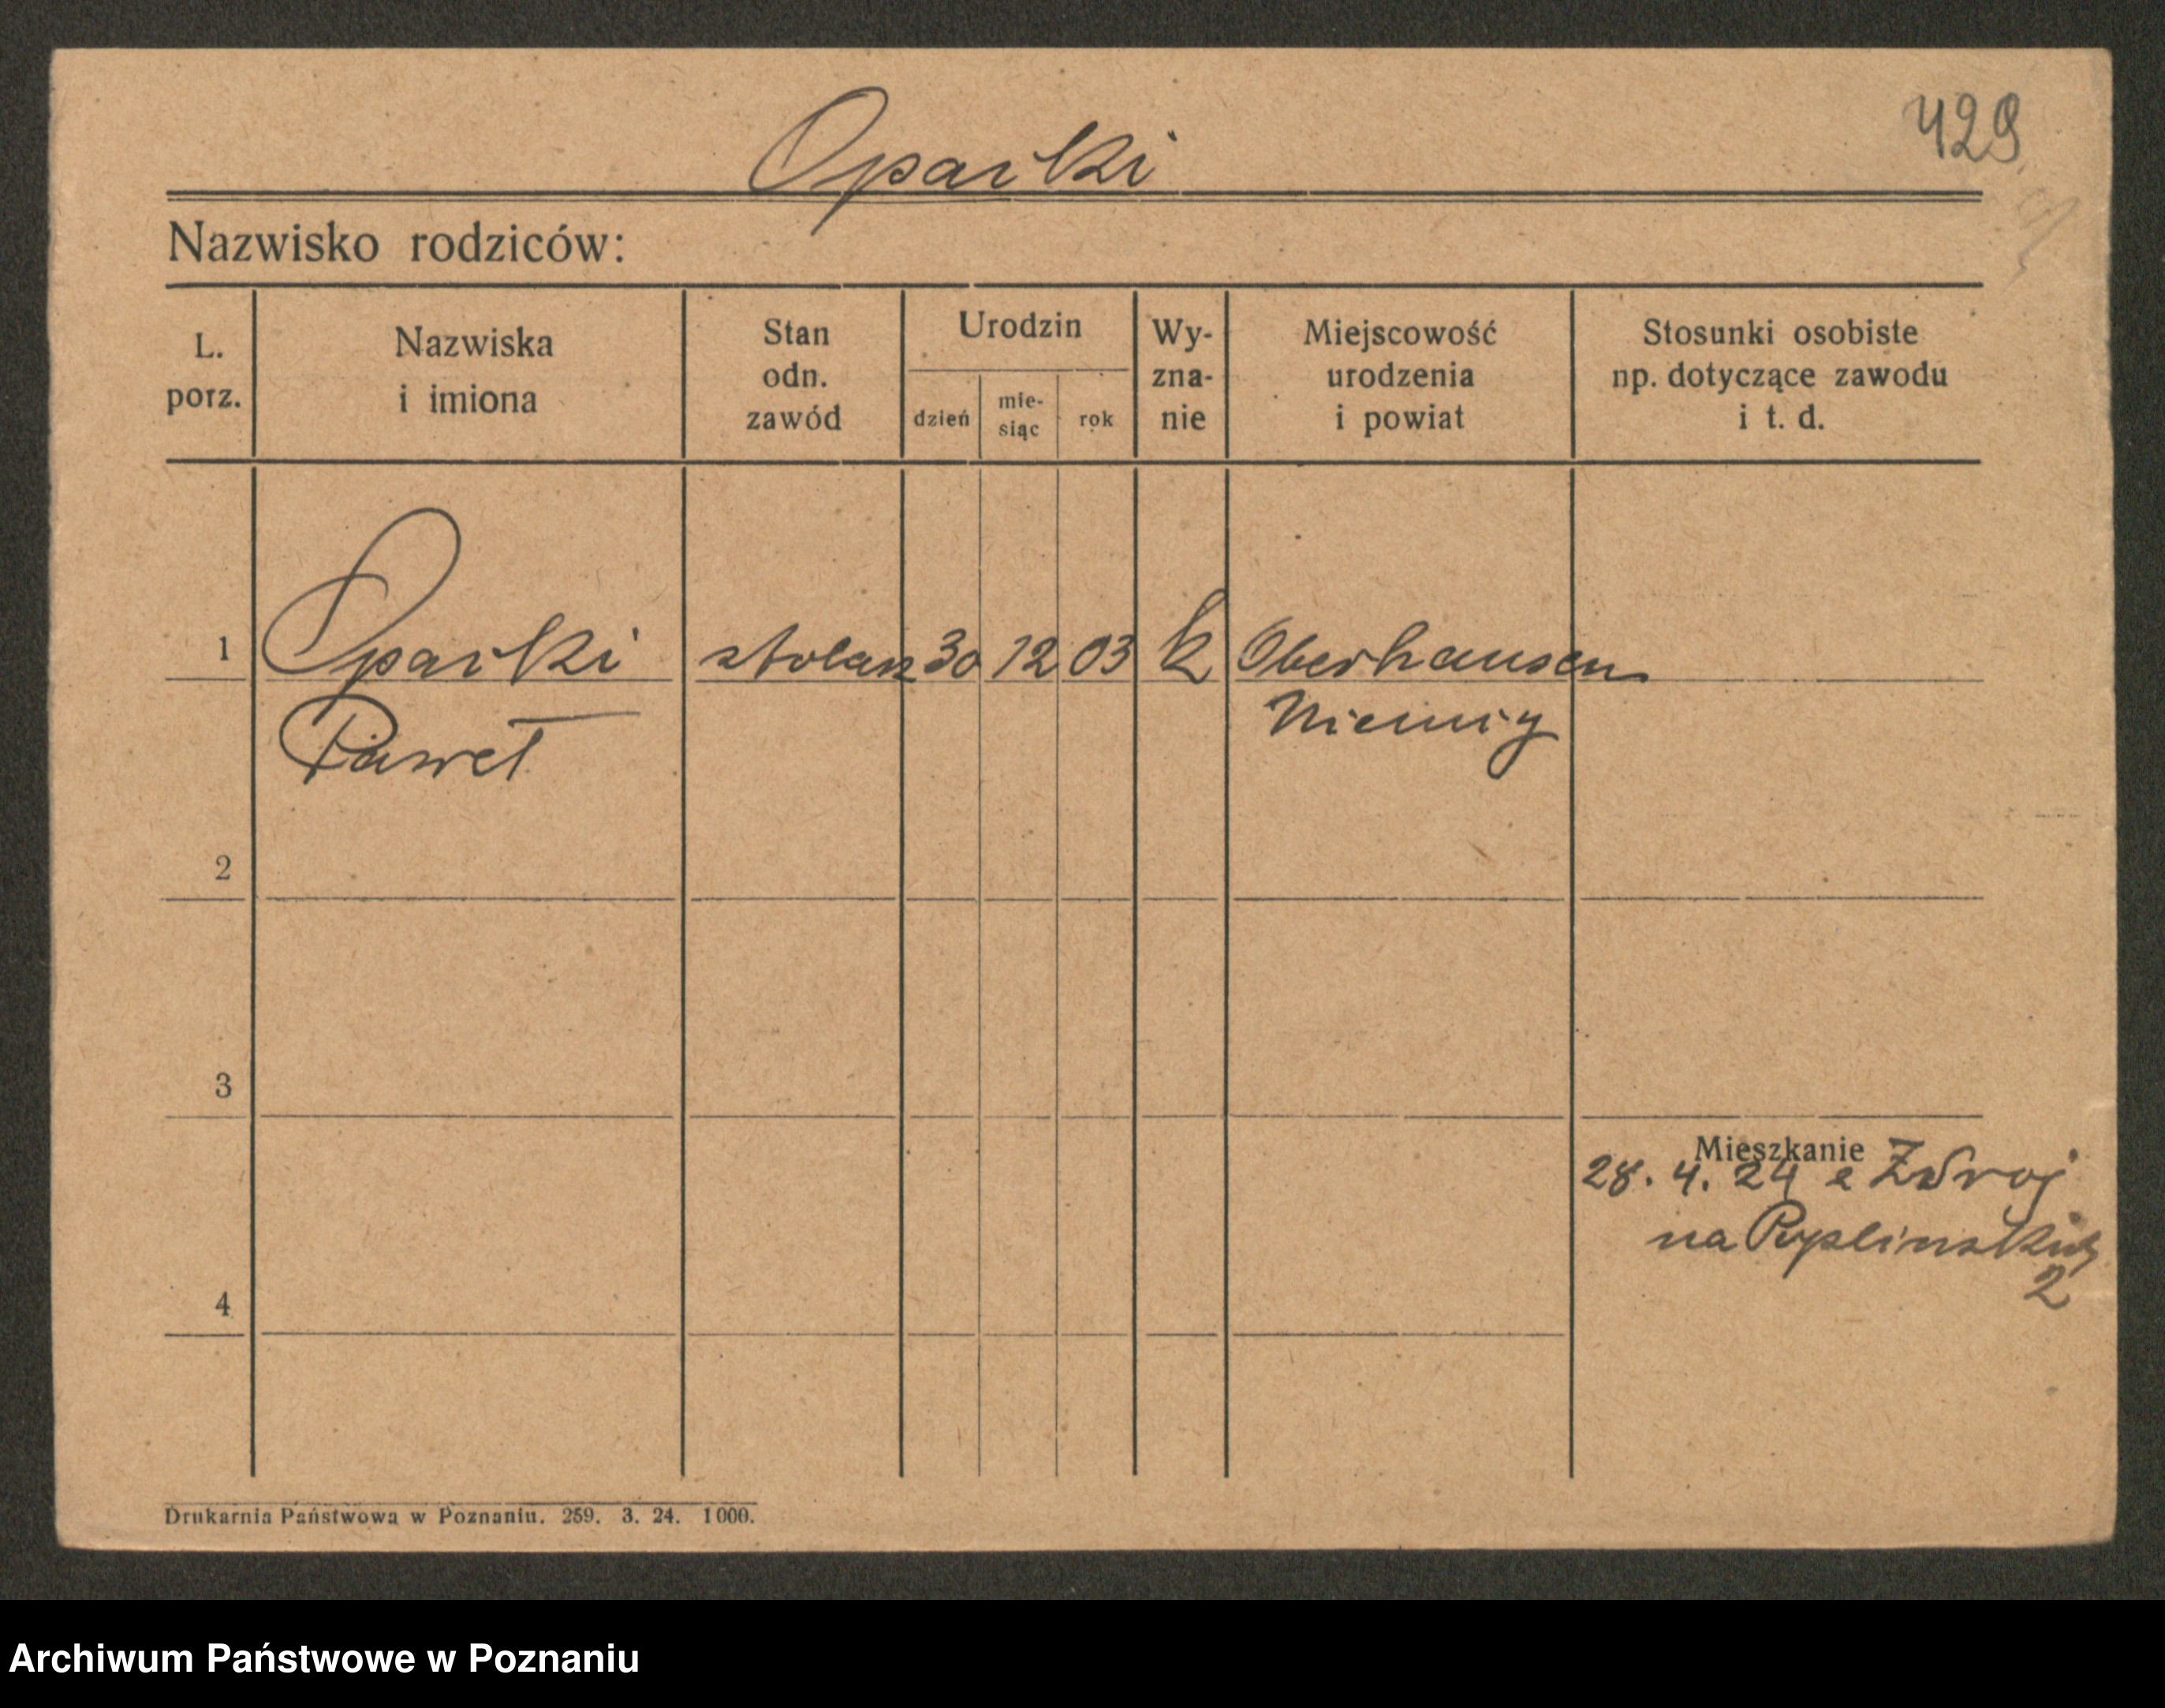 Oparlki
429
Nazwisko rodziców:
L. porz.
Nazwiska i imiona
Stan odn. zawód
Urodzin
dzień
mie-siąc
rok
Wy-zna-nie
Miejscowość urodzenia i powiat
Stosunki osobiste np. dotyczące zawodu i t. d.
1 stolarz 30 12 03 k Oberhausen
Paweł Niemcy
2
3
Mieszkanie
28. 4. 24 z Zdroj
na
2
4
Drukarnia Państwowa w Poznaniu. 259. 3. 24. 1000.
Archiwum Państwowe w Poznaniu